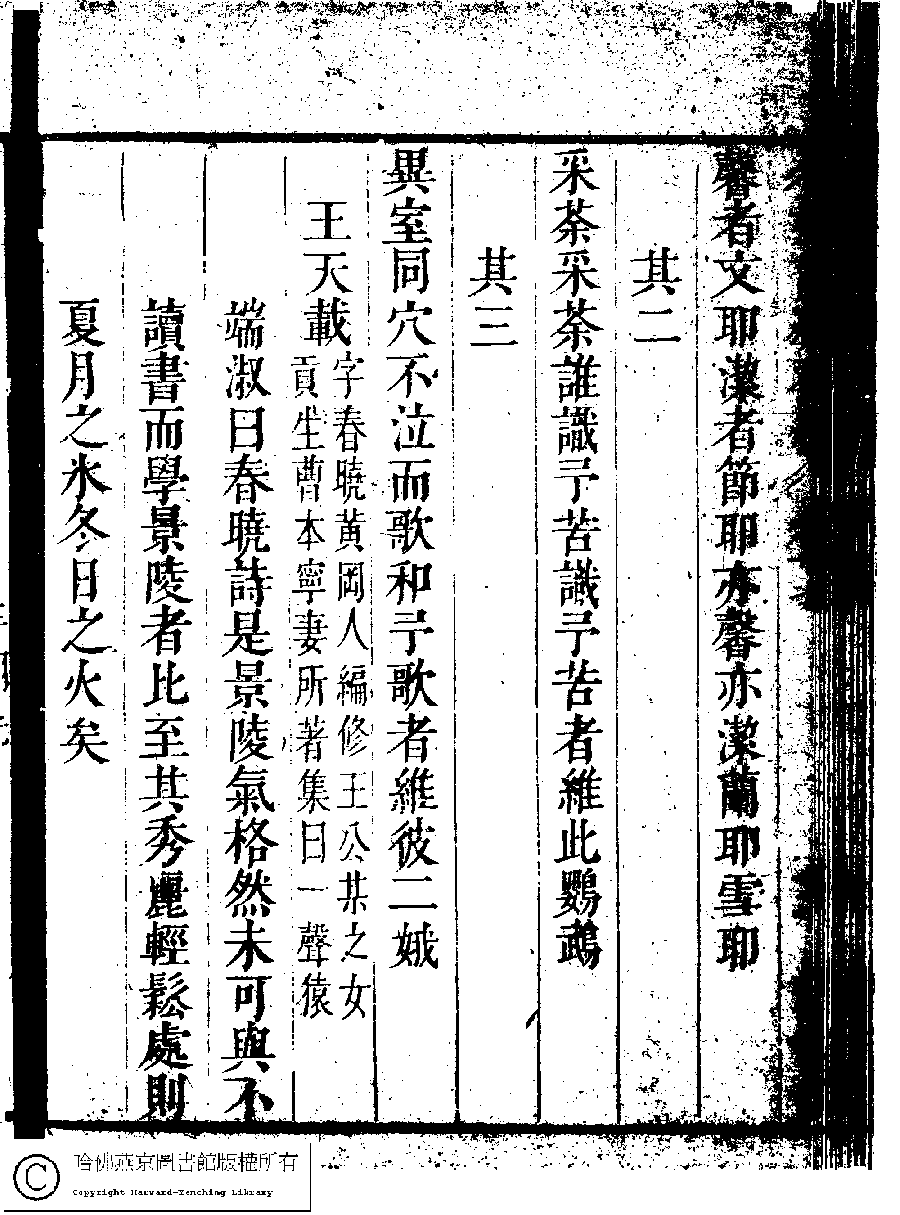 馨者文耶潔者節耶亦馨亦潔蘭耶雪耶
其二
采荼采荼誰識予苦識予苦者維此鸚鵡
其三
異室同穴不泣而歌和予歌者維彼二娥
王天載
字春曉黃岡人編修王公某之女
貢生曹本寧妻所著集曰一聲猿
端淑曰春曉詩是景陵氣格然未可與不
讀書而學景陵者比至其秀麗輕鬆處則
夏月之氷冬日之火矣
哈佛燕京圖書館版權所有
Copyright Harvard-Yenching Library